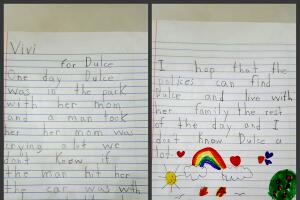 Vivi
for Dulce
One day Dulce
was in the park
with her mom
and a man took
her her mom was
crying a lot we
don't know if
the man hit her
the car was with
I hop that the
polices can find
Dulce and live with
her family the rest
of the day and I
don't know Dulce a
lot.